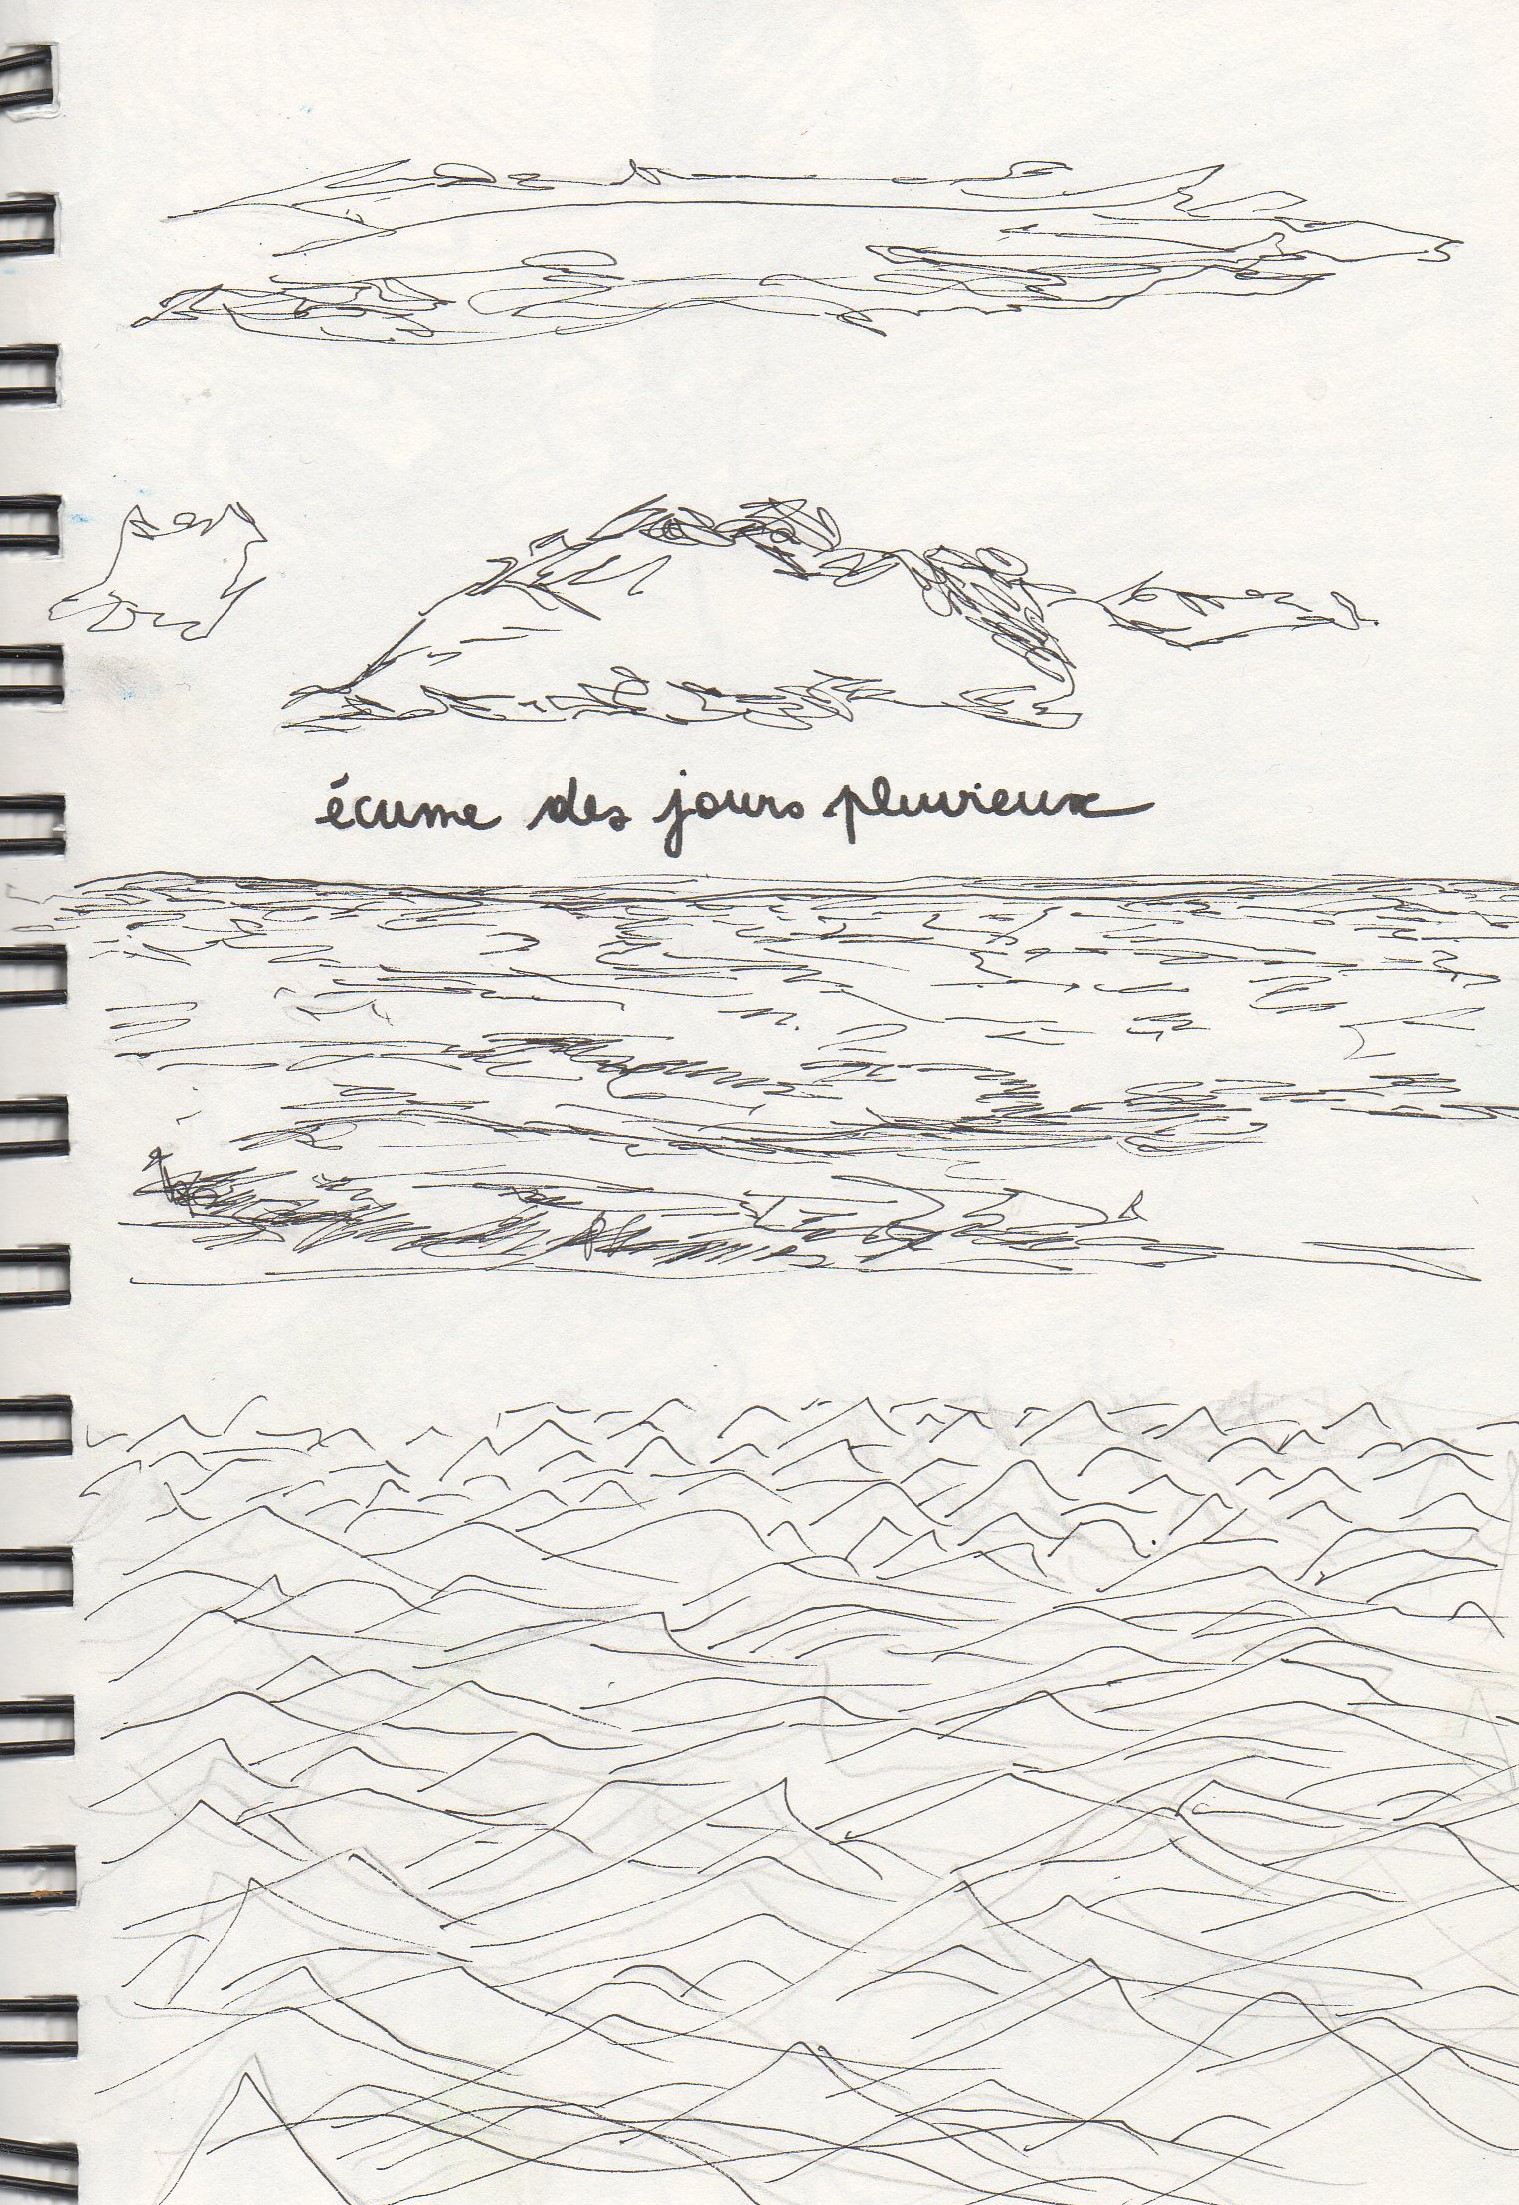 écume des jours pluvieux